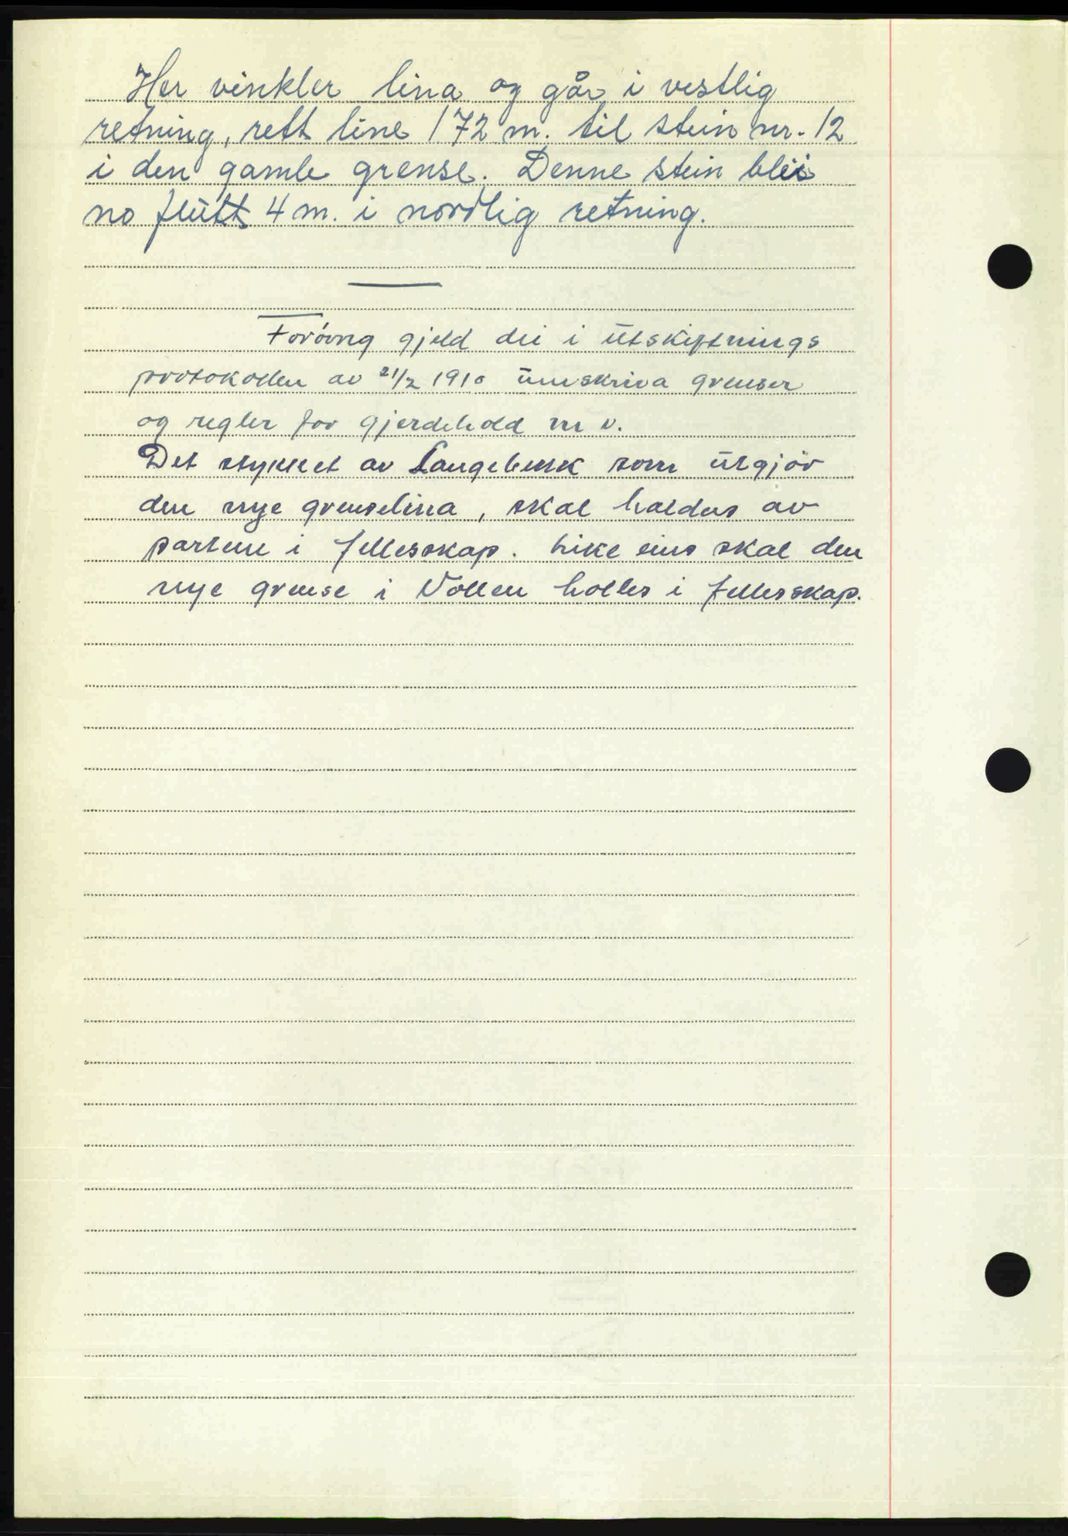 Her vinkler lina og går i vestlig
retning, rett line 172 m. til stein nr. 12
i den gamle grense. Denne stein blei
no flutt 4 m. i nordlig retning.
Forövrig gjeld dei i utskiftnings
protokollen av 21/2 1910 umskriva grenser
og regler for gjerdehold m v.
Det stykket av Langebekk som utgjör
den nye grenselina, skal haldas av
partene i fellesskap. Like eins skal den
nye grense i Vollen holles i fellesskap.